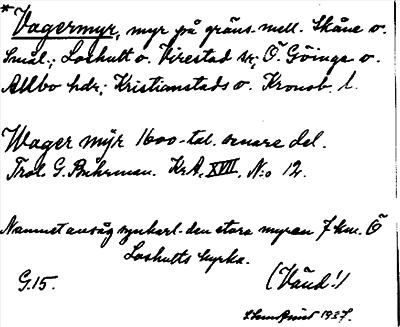 * Vagermyr, myr på gräns. mell. Skåne o.
Smål.; Loshult o. Virestad sr; Ö. Göinge o.
Allbo hdr; Kristianstads o. Kronob. l.
Wager mÿr 1600-tal. senare del.
Trol. G. Buhrman. Kr.A. XVIII, N:o 12.
Namnet avsåg synbarl. den stora myren 7 km. Ö
Loshults kyrka.
G.15. (Vänd!)
1937.